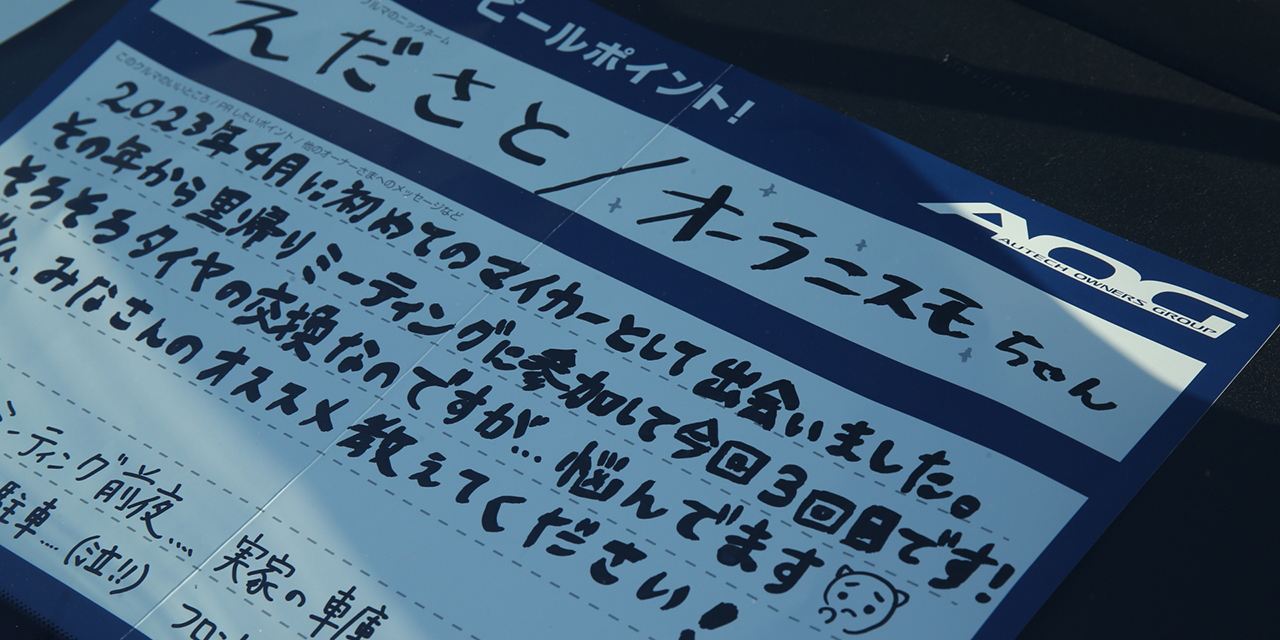 ピールポイント!
クルマのニックネーム
えださと/オーラニスモちゃん
AOG
AUTECH OWNERS GROUP
このクルマのいいところ / PRしたいポイント / 他のオーナーさまへのメッセージなど
2023年4月に初めてのマイカーとして出会いました。
その年から里帰りミーティングに参加して今回3回目です!
そろそろタイヤの交換なのですが… 悩んでます
みなさんのオススメ教えてください!
ミーティング前夜… 実家の車庫
駐車…(泣!!) フロン